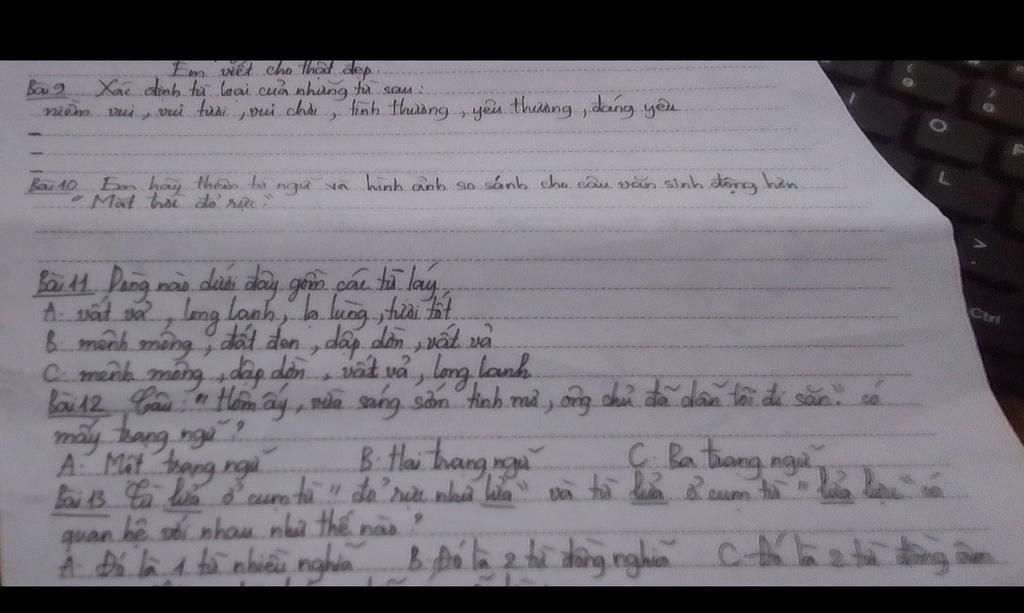 Em viết cho thật đẹp.
Bài 9 Xác định từ loại của những từ sau:
niềm vui, vui tươi, vui chơi, tình thương, yêu thương, đáng yêu
-
-
Bài 10 Em hãy thêm từ ngữ và hình ảnh so sánh cho câu văn sinh động hơn
"Mặt trời đỏ rực."
Bài 11 Dòng nào dưới đây gồm các từ láy
A. vất vả, long lanh, lạ lùng, tươi tốt
B. mênh mông, đất đen, dập dờn, vất vả
C. mênh mông, dập dờn, vất vả, long lanh
Bài 12 Câu: "Hôm ấy, vừa sáng sớm tinh mơ, ông chủ đã dẫn tôi đi săn." có
mấy trạng ngữ?
A. Một trạng ngữ B. Hai trạng ngữ C. Ba trạng ngữ
Bài 13 Từ lửa ở cụm từ "đỏ rực như lửa" và từ lửa ở cụm từ "lửa lựu" có
quan hệ với nhau như thế nào?
A. Đó là 1 từ nhiều nghĩa B. Đó là 2 từ đồng nghĩa C. Đó là 2 từ đồng âm